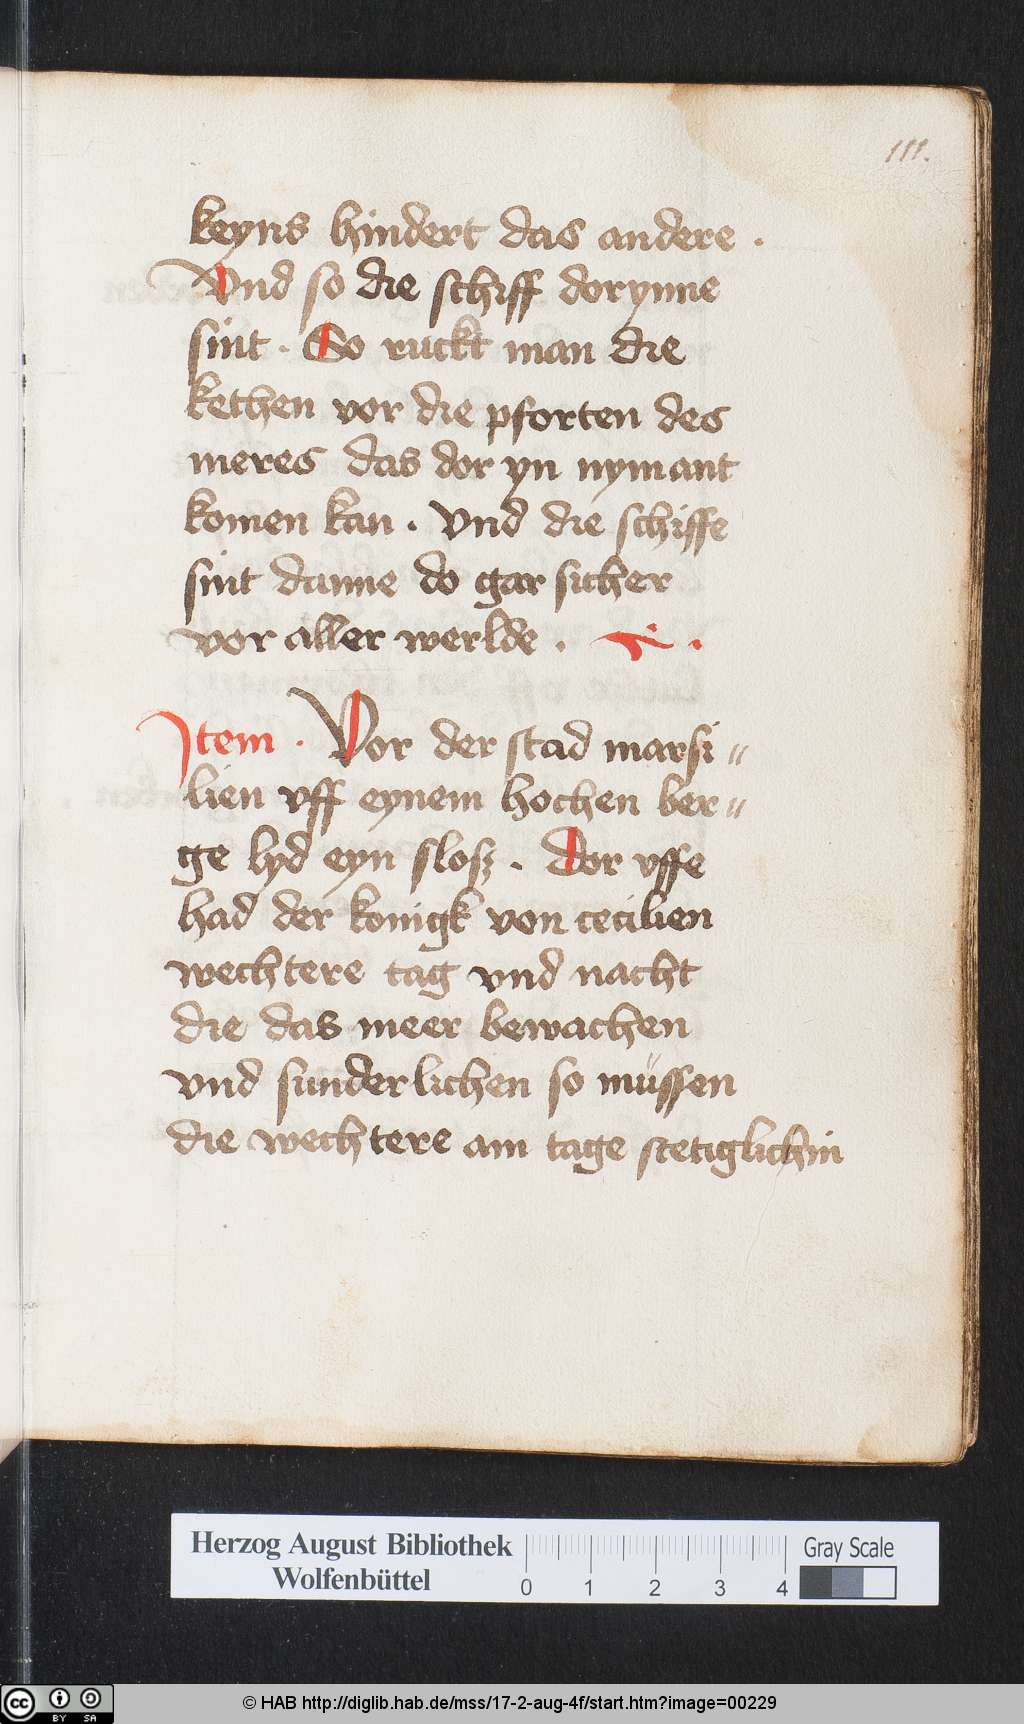 111.
keyns hindert das andere .
Vnd so die schiff dorynne
sint . So ruckt man die
kethen vor die pforten des
meres das dor yn nymant
komen kan . vnd die schiffe
sint danne do gar sicher
vor aller werlde .
Item . Vor der stad marsi〃
lien vff eynem hochen ber〃
ge lyd eyn slosz . Dor vffe
had der konigk von cecilien
wechtere tag vnd nacht
die das meer bewachen
vnd sunderlichen so müssen
die wechtere am tage stetiglichin
Herzog August Bibliothek
Wolfenbüttel
0 1 2 3 4
Gray Scale
cc BY SA
© HAB http://diglib.hab.de/mss/17-2-aug-4f/start.htm?image=00229